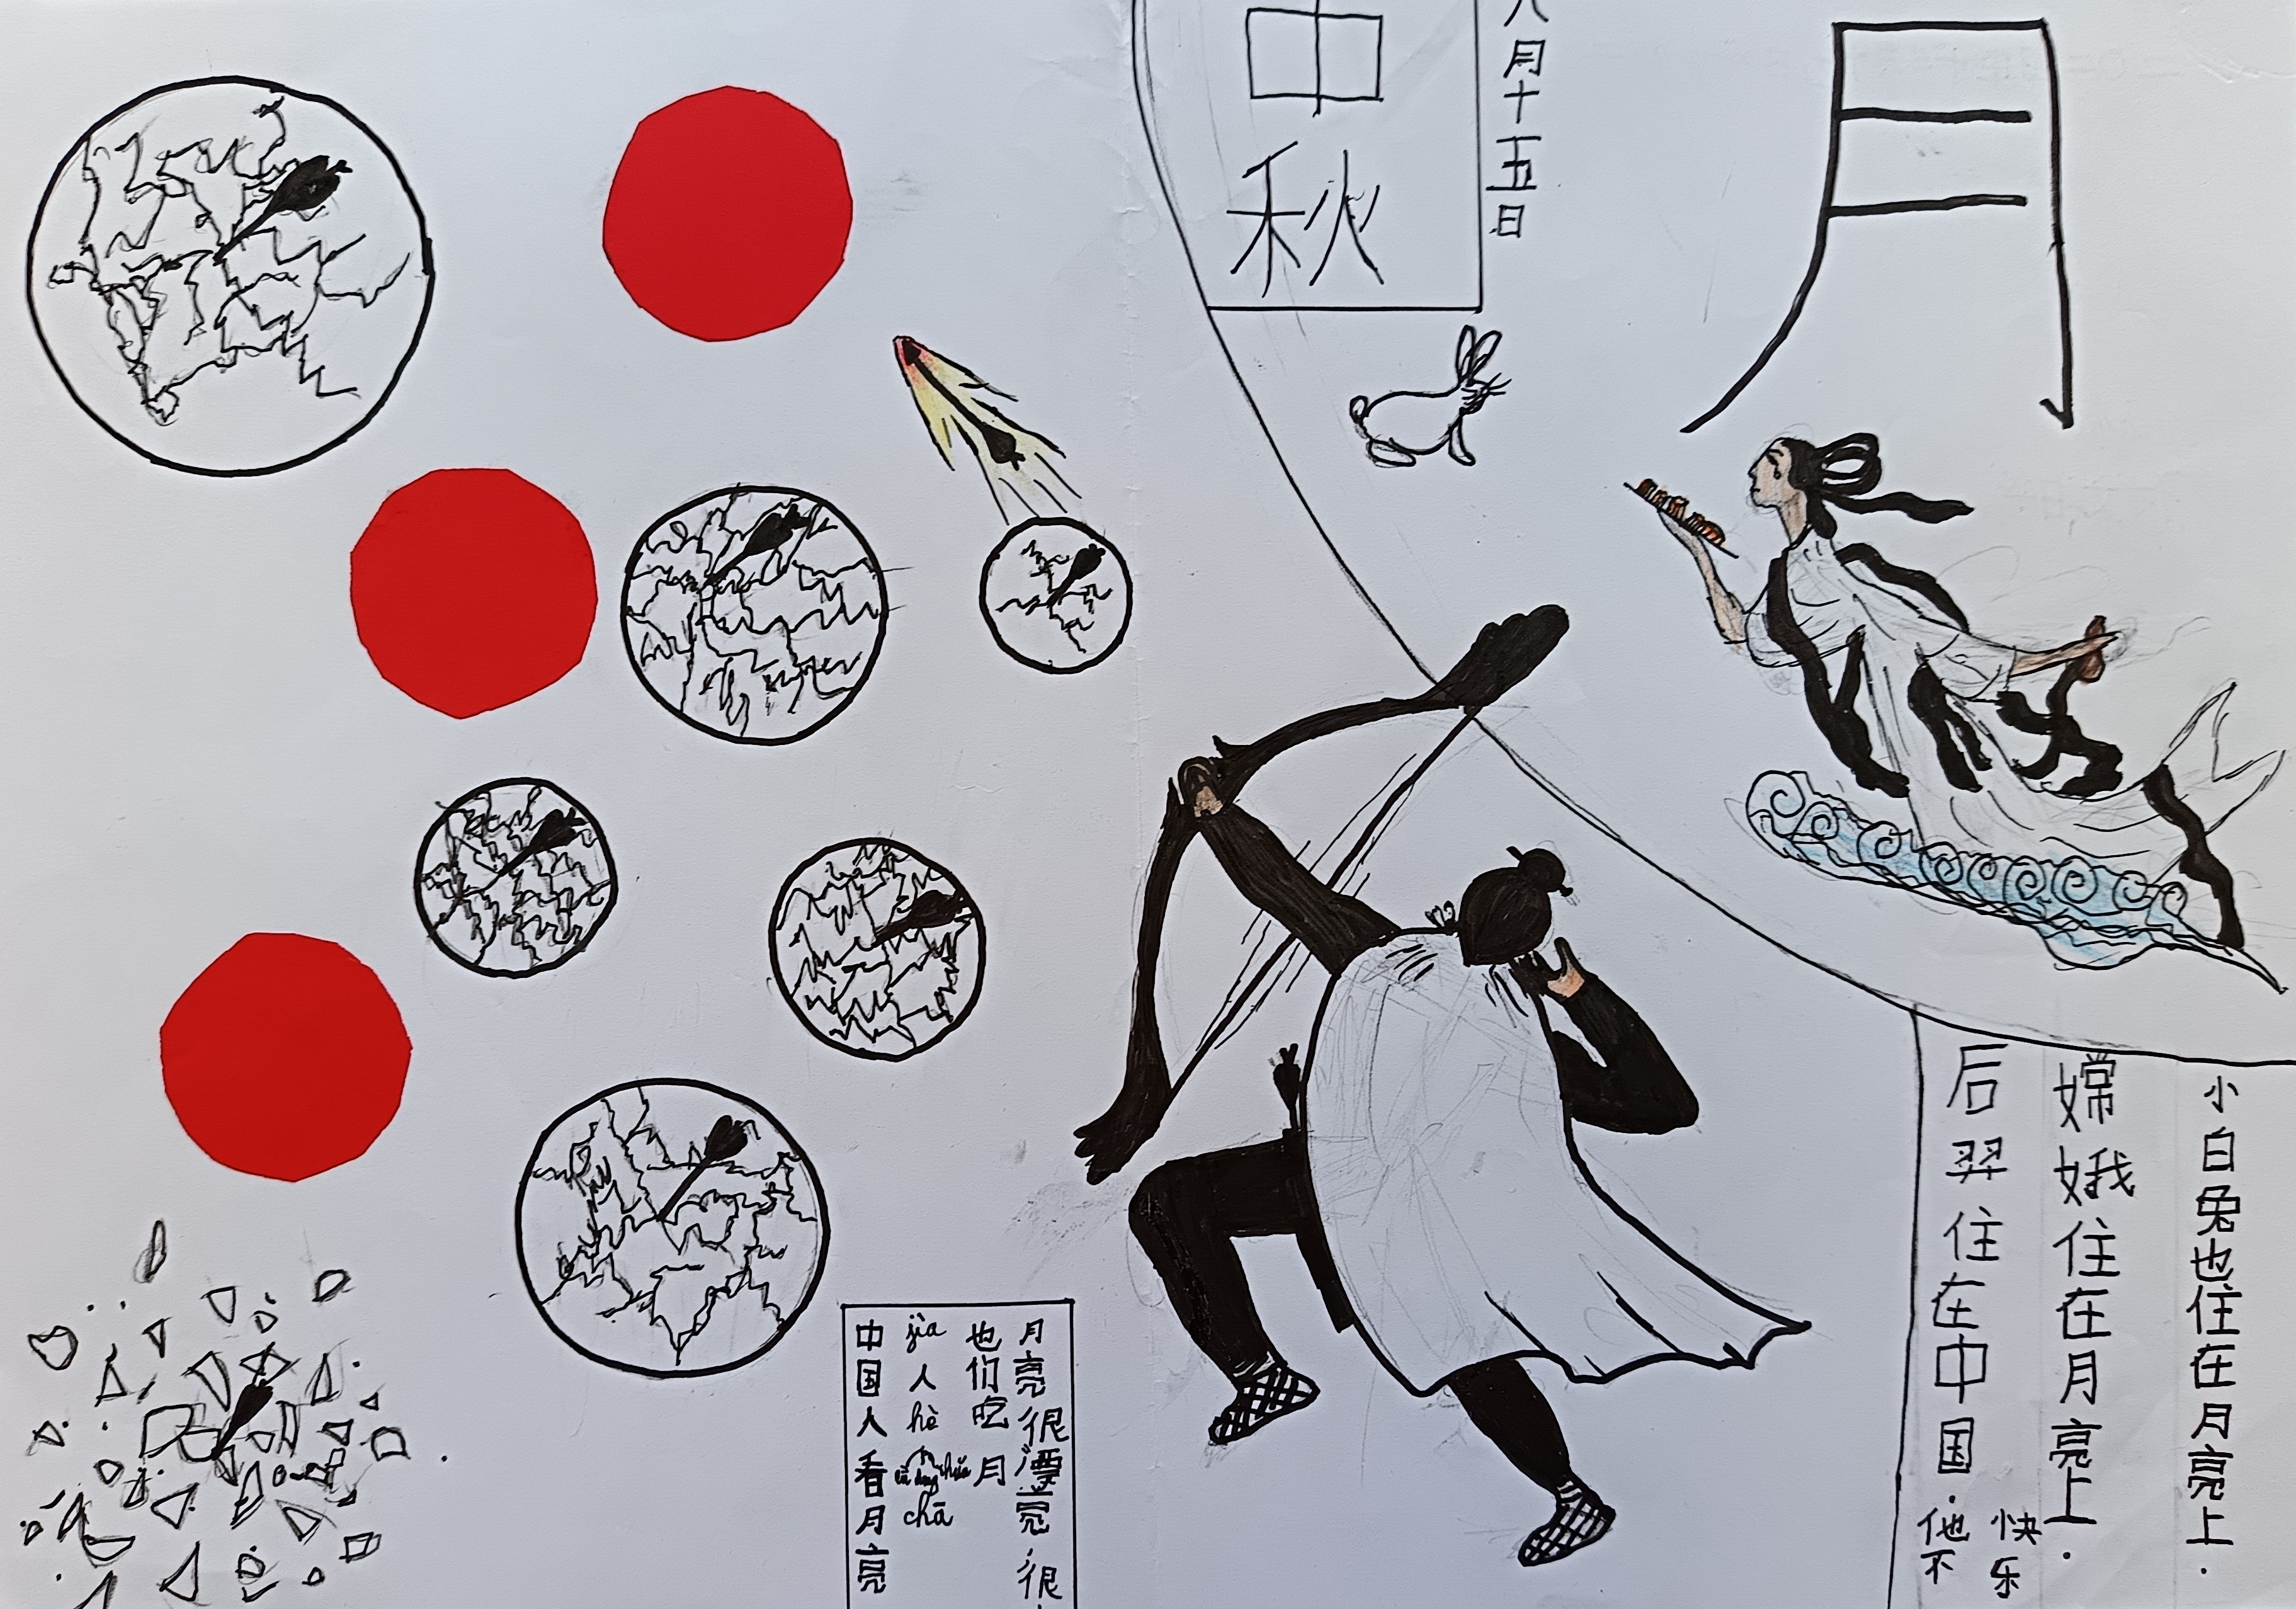 中秋
八月十五日
月
小白兔也住在月亮上.
嫦娥住在月亮上.
后羿住在中国.他不
快乐
月亮很漂亮,很
也们吃月
jiā人hē
chā
中国人看月亮